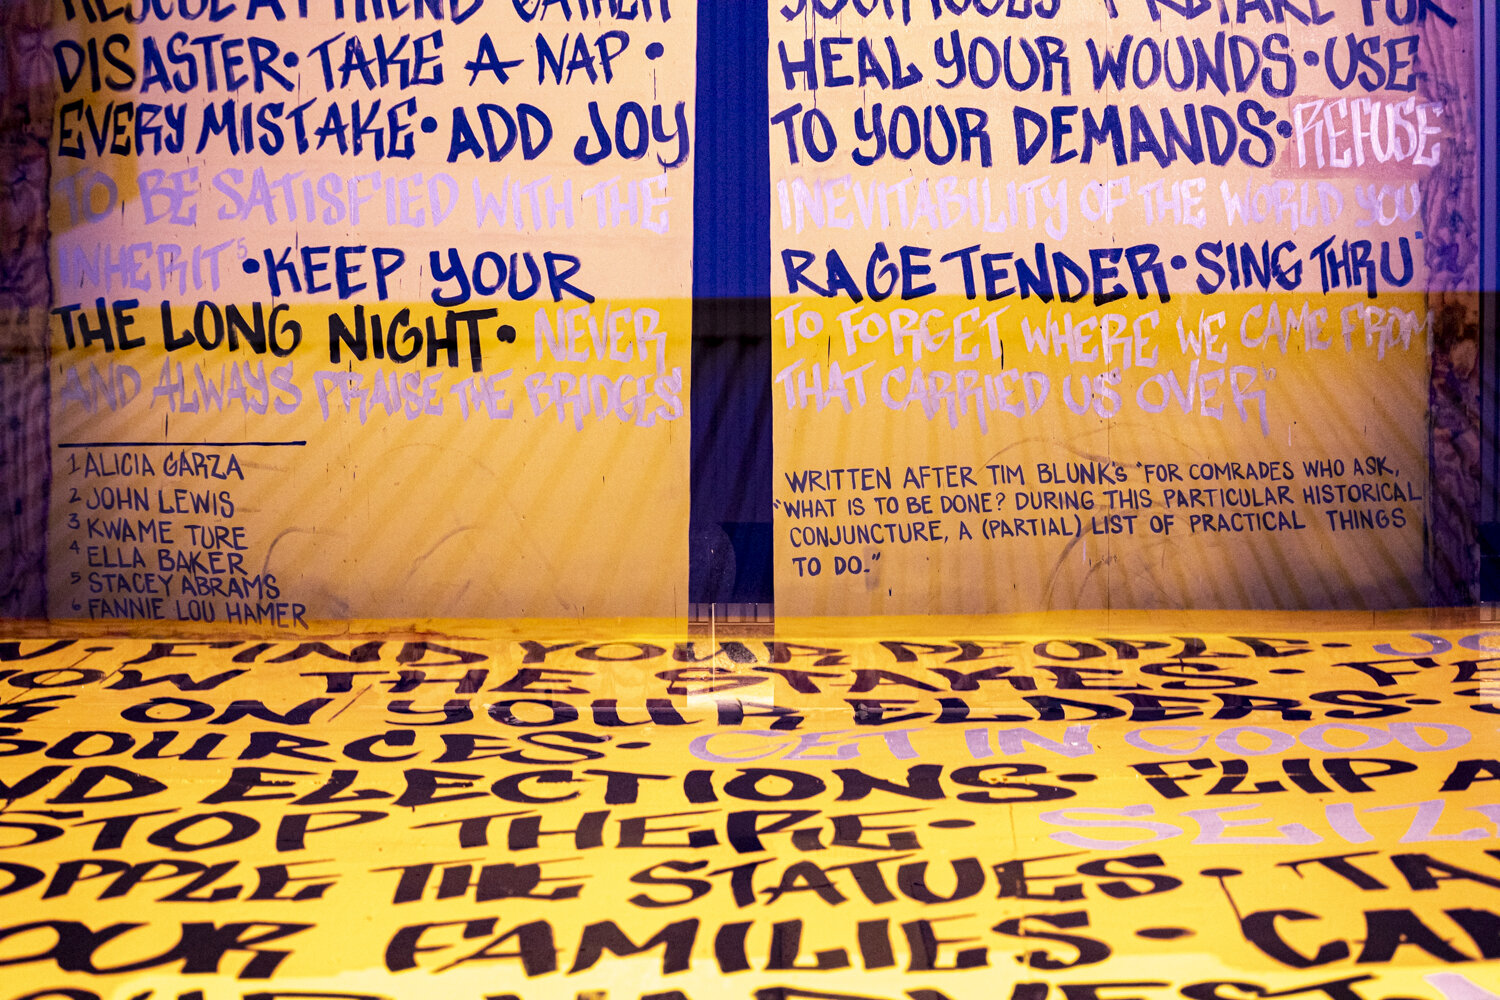 RESCUE A FRIEND GATHER
DISASTER • TAKE A NAP •
EVERY MISTAKE • ADD JOY
TO BE SATISFIED WITH THE
INHERIT⁵ • KEEP YOUR
THE LONG NIGHT • NEVER
AND ALWAYS PRAISE THE BRIDGES
1 ALICIA GARZA
2 JOHN LEWIS
3 KWAME TURE
4 ELLA BAKER
5 STACEY ABRAMS
6 FANNIE LOU HAMER
FOR
HEAL YOUR WOUNDS • USE
TO YOUR DEMANDS • REFUSE
INEVITABILITY OF THE WORLD YOU
RAGE TENDER • SING THRU
TO FORGET WHERE WE CAME FROM
THAT CARRIED US OVER"
WRITTEN AFTER TIM BLUNK'S "FOR COMRADES WHO ASK,
"WHAT IS TO BE DONE? DURING THIS PARTICULAR HISTORICAL
CONJUNCTURE, A (PARTIAL) LIST OF PRACTICAL THINGS
TO DO."
• FIND YOUR PEOPLE •
OW THE STAKES •
ON YOUR ELDERS •
OURCES • GET IN GOOD
ND ELECTIONS • FLIP A
STOP THERE • SEIZ
OPPLE THE STATUES • TA
OUR FAMILIES • CAN
HARVEST